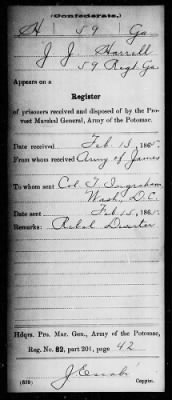 (Confederate.)
H 59 Ga
J J Harrell
59 Regt Ga
Appears on a
Register
of prisoners received and disposed of by the Pro-
vost Marshal General, Army of the Potomac.
Date received Feb 15, 1865.
From whom received Army of James
To whom sent Col. T. Ingraham
Wash, D.C.
Date sent Feb 15, 1865.
Remarks: Rebel Deserter
Hdqrs. Pro. Mar. Gen., Army of the Potomac,
Reg. No. 82, part 201, page 42
(639)
Copyist.